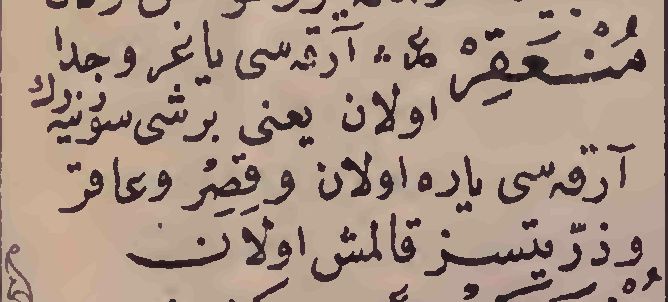 مُنْعَقِرْ ع آرقه‌سى ياغر وجدا
اولان يعنى برشى سورنيه‌رك
آرقه‌سى ياره اولان وقِصِرْ وعاقر
وذرّيتسز قالمش اولان